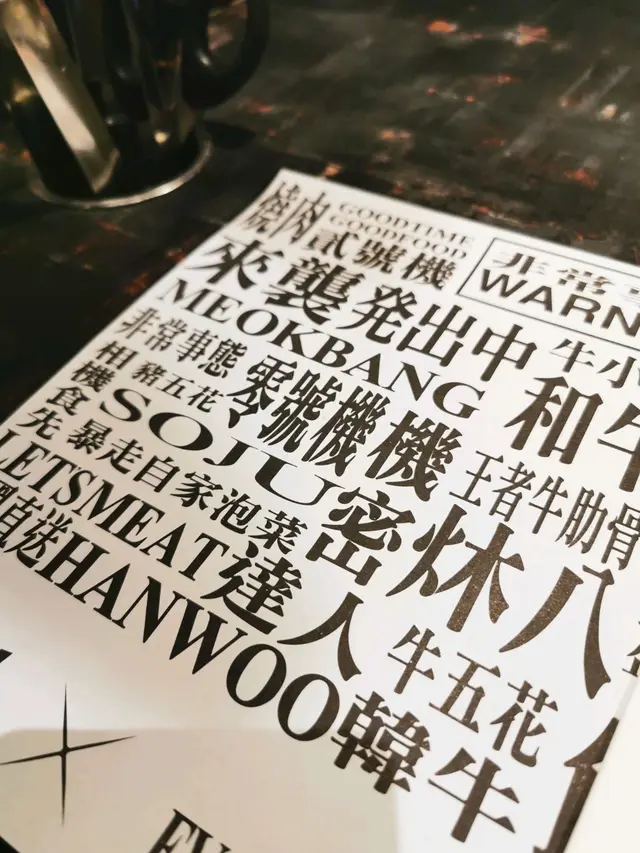 燒肉 GOODTIME
GOODFOOD
貳號機
非常事
WARN
來襲 発出中
牛小
MEOKBANG
和牛
非常事態 零號機機
相 豬五花
機
食 SOJU
王者牛肋骨
先 暴走自家泡菜 密
LETSMEAT 達人
直送 HANWOO
牛五花
韓牛